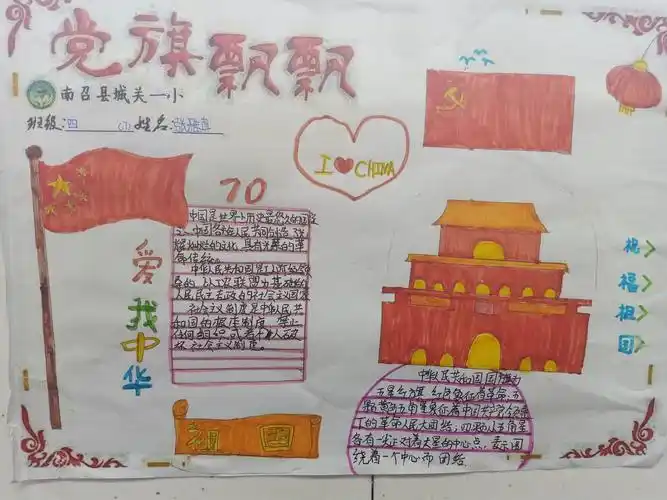 党旗飘飘
南召县城关一小
班级:四 (1) 姓名:
I CHINA
70
爱我中华
祝福祖国
中国是世界上历史最悠久的国家
之一,中国各族人民共同创造了
辉煌灿烂的文化,具有光荣的革
命传统。
中华人民共和国是工人阶级领
导的,以工农联盟为基础的
人民民主专政的社会主义国家
社会主义制度是中华人民共
和国的根本制度。禁止
任何组织或者个人破
坏社会主义制度。
祖国
中华人民共和国国旗为
五星红旗,红色象征着革命,五
颗黄色五角星象征着中国共产党领
下的革命人民大团结,四颗小五角星
各有一尖正对着大星的中心点,表示围
绕着一个中心而团结